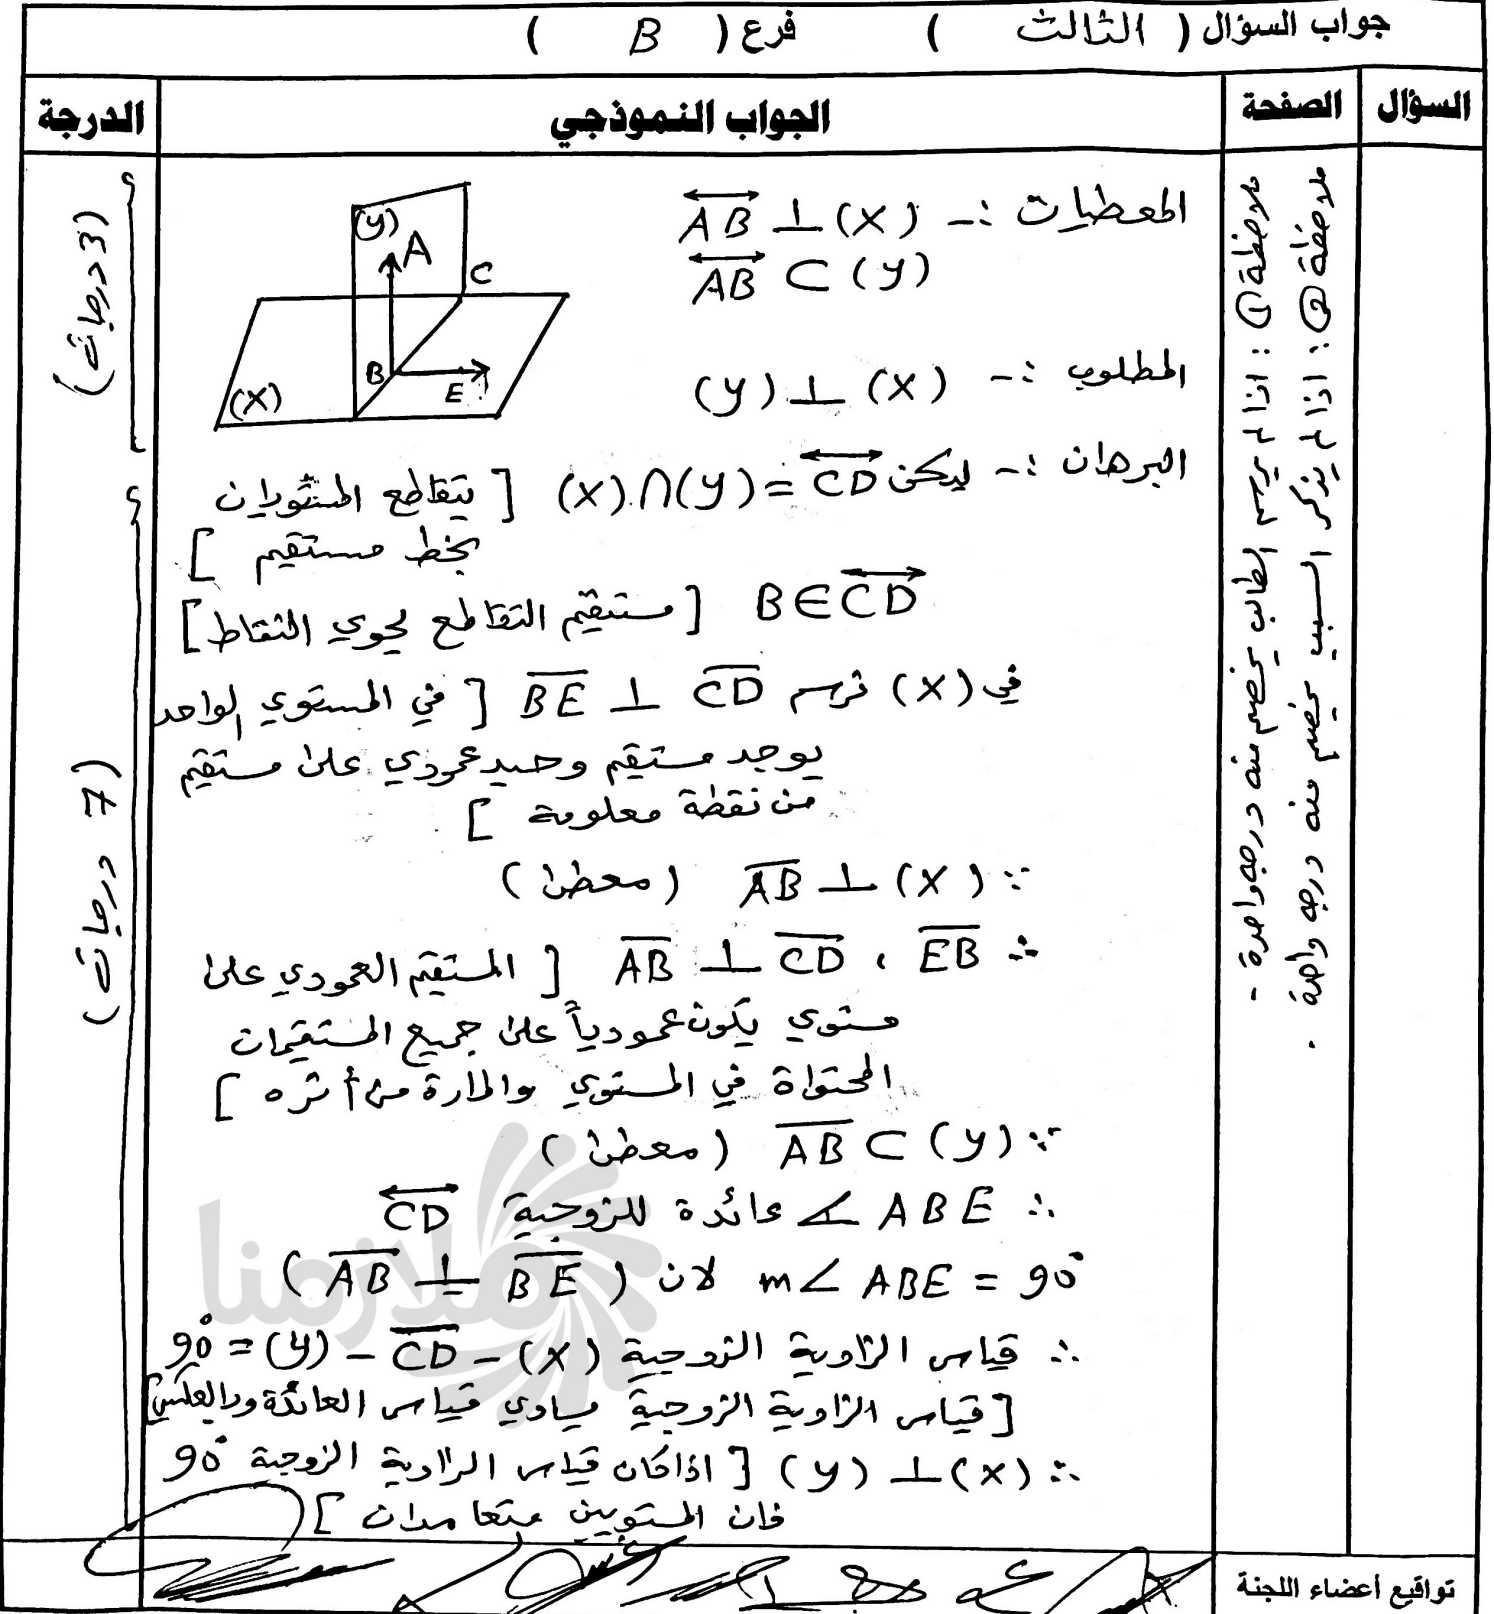 جواب السؤال ( الثالث ) فرع ( B )
السؤال
الصفحة
الجواب النموذجي
الدرجة
ملاحظة ①: اذا لم يرسم الطالب يخصم منه درجة واحدة .
ملاحظة ②: اذا لم يذكر السبب يخصم منه درجة واحدة .
المعطيات :- AB ⊥ (X)
AB ⊂ (Y)
(Y) A C B E (X)
المطلوب :- (Y) ⊥ (X)
(3 درجات)
البرهان :- ليكن CD = (X) ∩ (Y) [ يتقاطع المستويان
بخط مستقيم ]
B ∈ CD [ مستقيم التقاطع يحوي النقاط ]
في (X) نرسم BE ⊥ CD [ في المستوي الواحد
يوجد مستقيم وحيد عمودي على مستقيم
من نقطة معلومة ]
(7 درجات)
∵ AB ⊥ (X) (معطى)
∴ AB ⊥ CD ، EB [ المستقيم العمودي على
مستوي يكون عمودياً على جميع المستقيمات
المحتواة في المستوي والمارة من أثره ]
∵ AB ⊂ (Y) (معطى)
∴ ∠ ABE عائدة للزوجية CD
m∠ ABE = 90° لان ( AB ⊥ BE )
∴ قياس الزاوية الزوجية (X) - CD - (Y) = 90°
[قياس الزاوية الزوجية يساوي قياس العائدة وبالعكس]
∴ (Y) ⊥ (X) [ اذا كان قياس الزاوية الزوجية 90°
فان المستويين متعامدان ]
ملازمنا
تواقيع أعضاء اللجنة